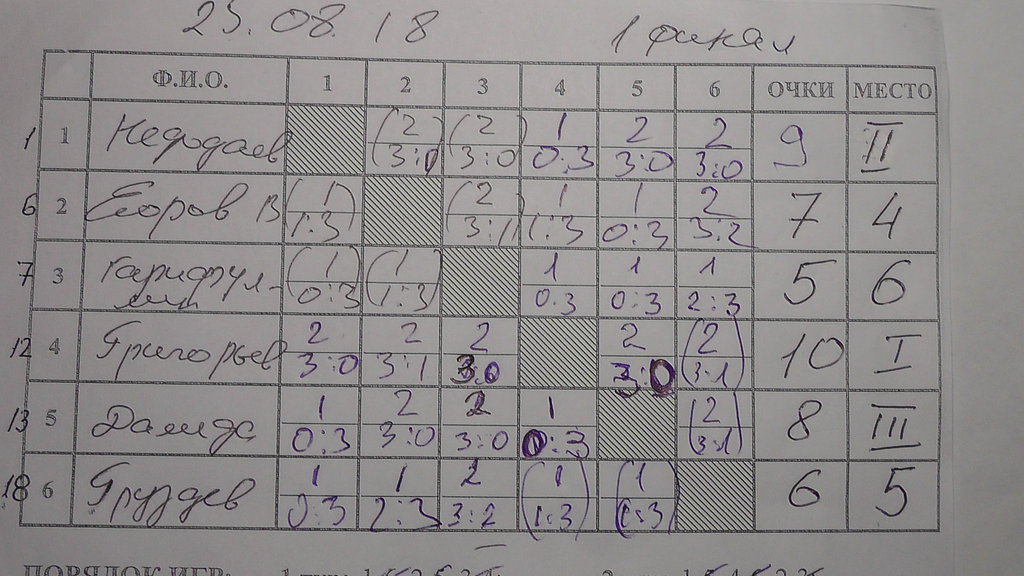 25.08.18 1 финал
Ф.И.О. 1 2 3 4 5 6 ОЧКИ МЕСТО
1 1 Недодаев (2) (2) 1 2 2 9 II
(3:0) (3:0) 0:3 3:0 3:0
6 2 Егоров В (1) (2) 1 1 2 7 4
(1:3) (3:1) 1:3 0:3 3:2
7 3 Гарифул- (1) (1) 1 1 1 5 6
лин (0:3) (1:3) 0:3 0:3 2:3
12 4 Григорьев 2 2 2 2 (2) 10 I
3:0 3:1 3:0 3:0 (3:1)
13 5 Далида 1 2 2 1 (2) 8 III
0:3 3:0 3:0 0:3 (3:1)
18 6 Груздев 1 1 2 (1) (1) 6 5
0:3 2:3 3:2 (1:3) (1:3)
ПОРЯДОК ИГР: